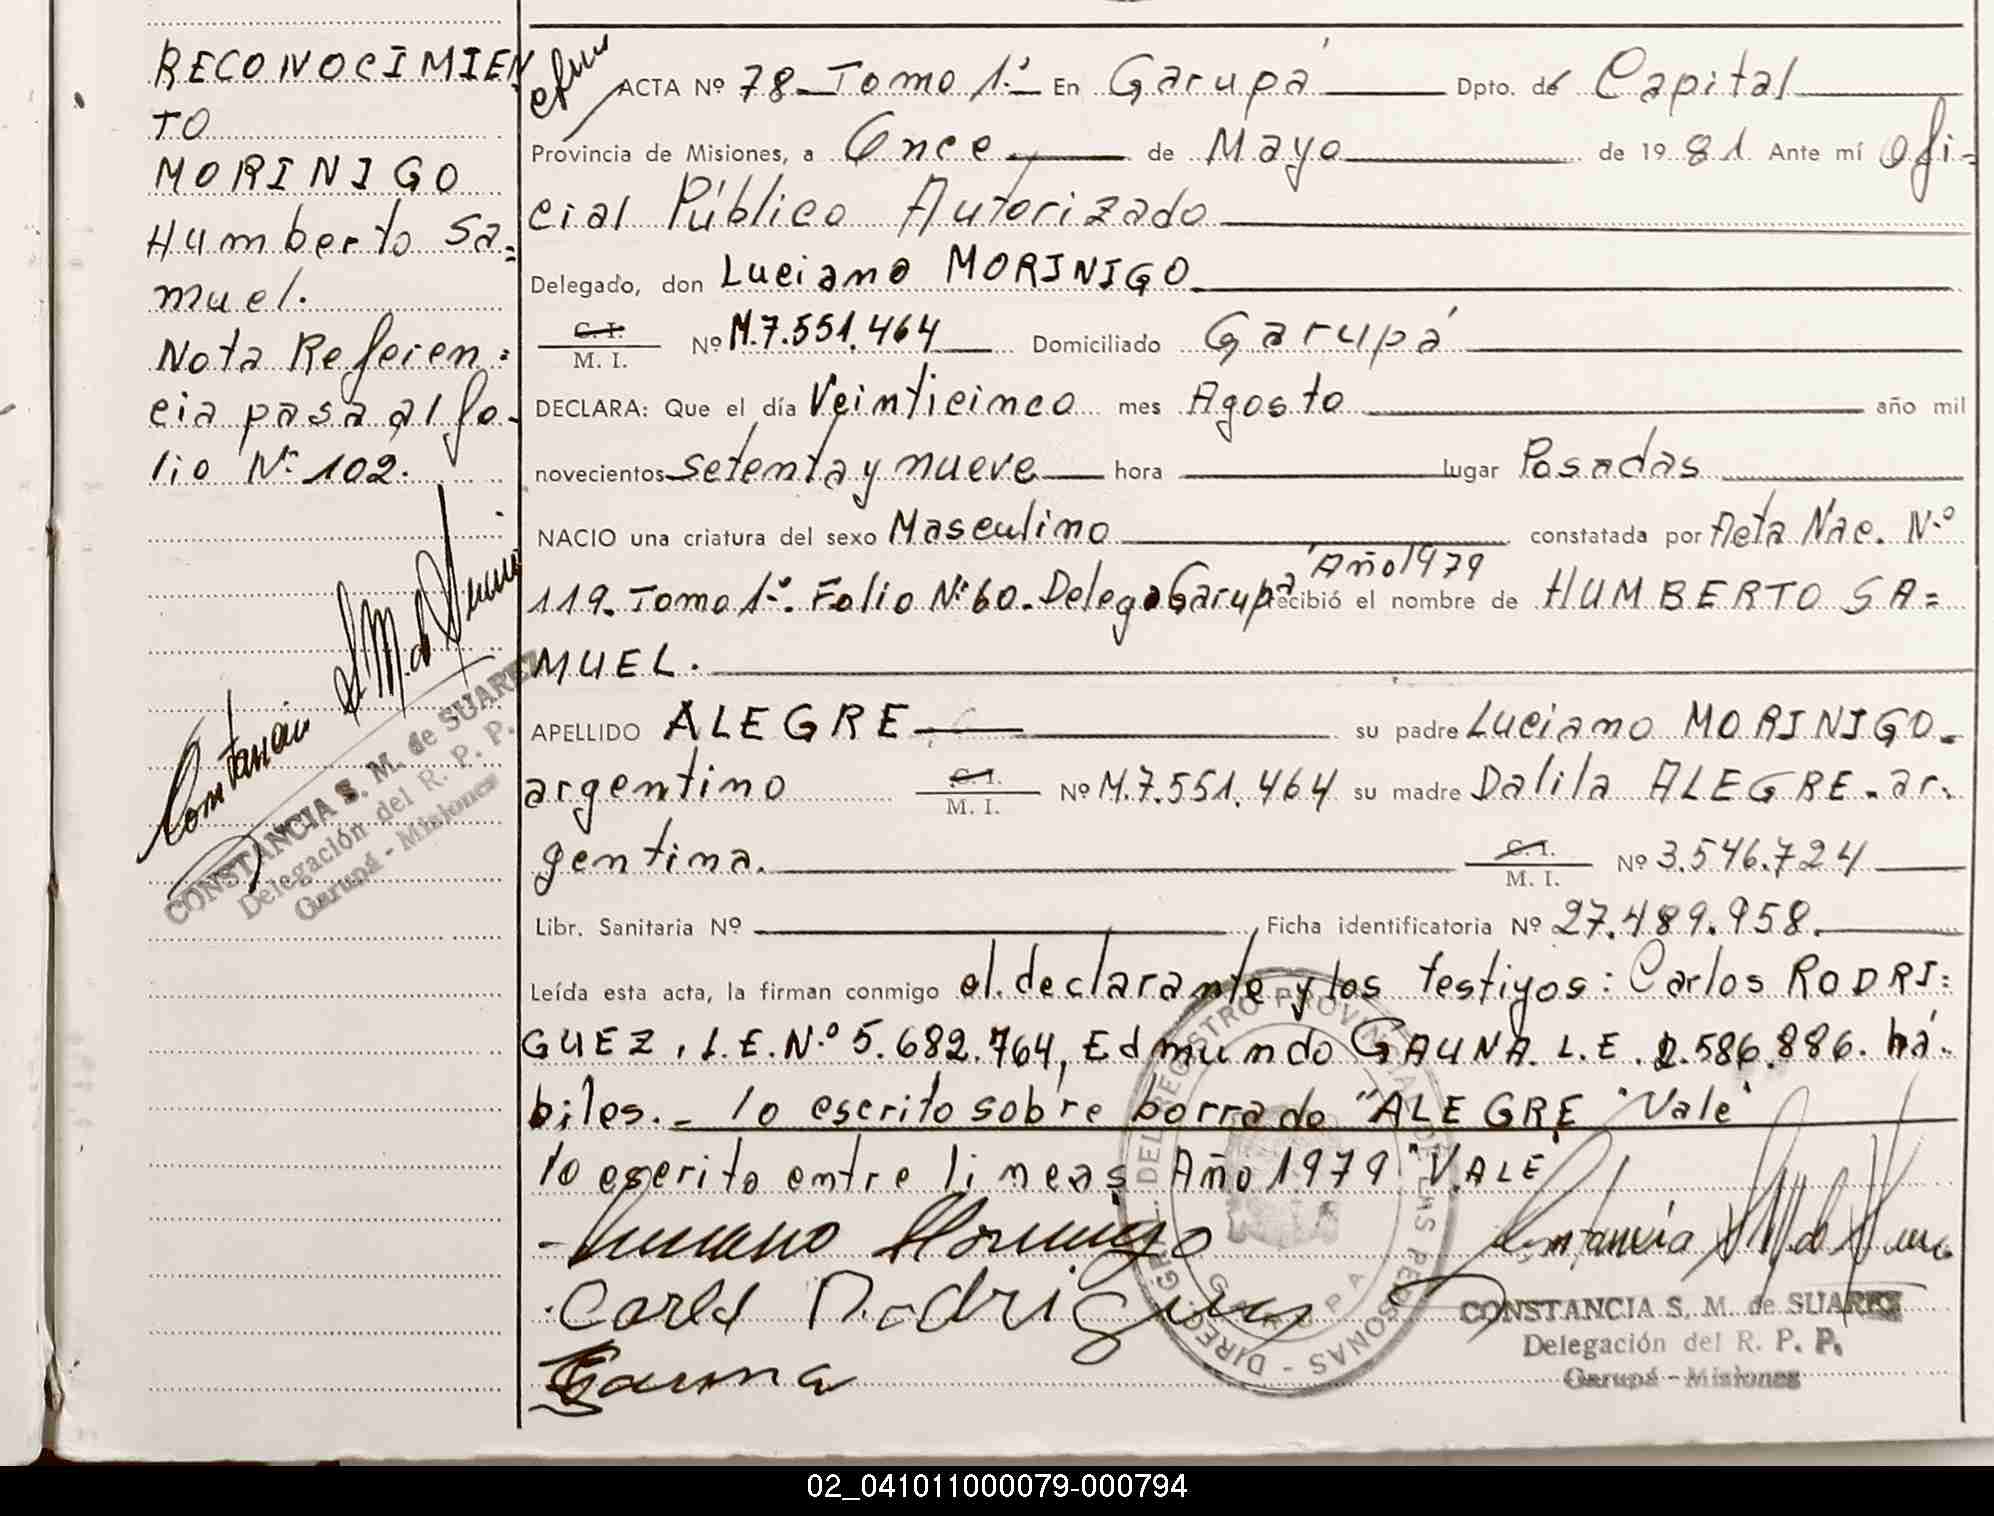 RECONOCIMIEN
TO
MORINIGO
Humberto Sa=
muel.
Nota Refeien=
cia pasa al fo-
lio Nº 102.
Constancia S. M. de Suarez
CONSTANCIA S. M. de SUAREZ
Delegación del R. P. P.
Garupá - Misiones
ACTA Nº 78 Tomo 1º En Garupá Dpto. de Capital
Provincia de Misiones, a Once de Mayo de 1981 Ante mí Ofi=
cial Público Autorizado
Delegado, don Luciano MORINIGO
C. I. M. I. Nº M.7.551.464 Domiciliado Garupá
DECLARA: Que el día Veinticinco mes Agosto año mil
novecientos setenta y nueve hora lugar Posadas
NACIO una criatura del sexo Masculino constatada por Acta Nac. Nº
Año 1979
119. Tomo 1º. Folio Nº 60. Delega Garupá recibió el nombre de HUMBERTO SA=
MUEL.
APELLIDO ALEGRE su padre Luciano MORINIGO.
argentino C. I. M. I. Nº M.7.551.464 su madre Dalila ALEGRE. ar.
gentina. C. I. M. I. Nº 3.546.724
Libr. Sanitaria Nº Ficha identificatoria Nº 27.489.958.
Leída esta acta, la firman conmigo el declarante y los testigos: Carlos RODRI:
GUEZ, L.E. Nº 5.682.764, Edmundo GAUNA. L.E. 2.586.886. há.
biles._ lo escrito sobre borrado "ALEGRE "Vale"
lo escrito entre lineas Año 1979 "VALE"
Luciano Morinigo
Constancia S. M. de Suarez
Carlos Rodriguez
Gauna
DIREC. GRAL. DEL REGISTRO PROVINCIAL DE LAS PERSONAS -
GARUPA
CONSTANCIA S. M. de SUAREZ
Delegación del R. P. P.
Garupá - Misiones
02_041011000079-000794